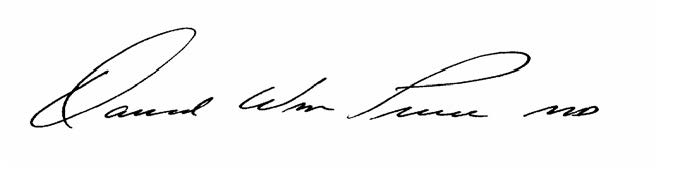 David Wm Price MD